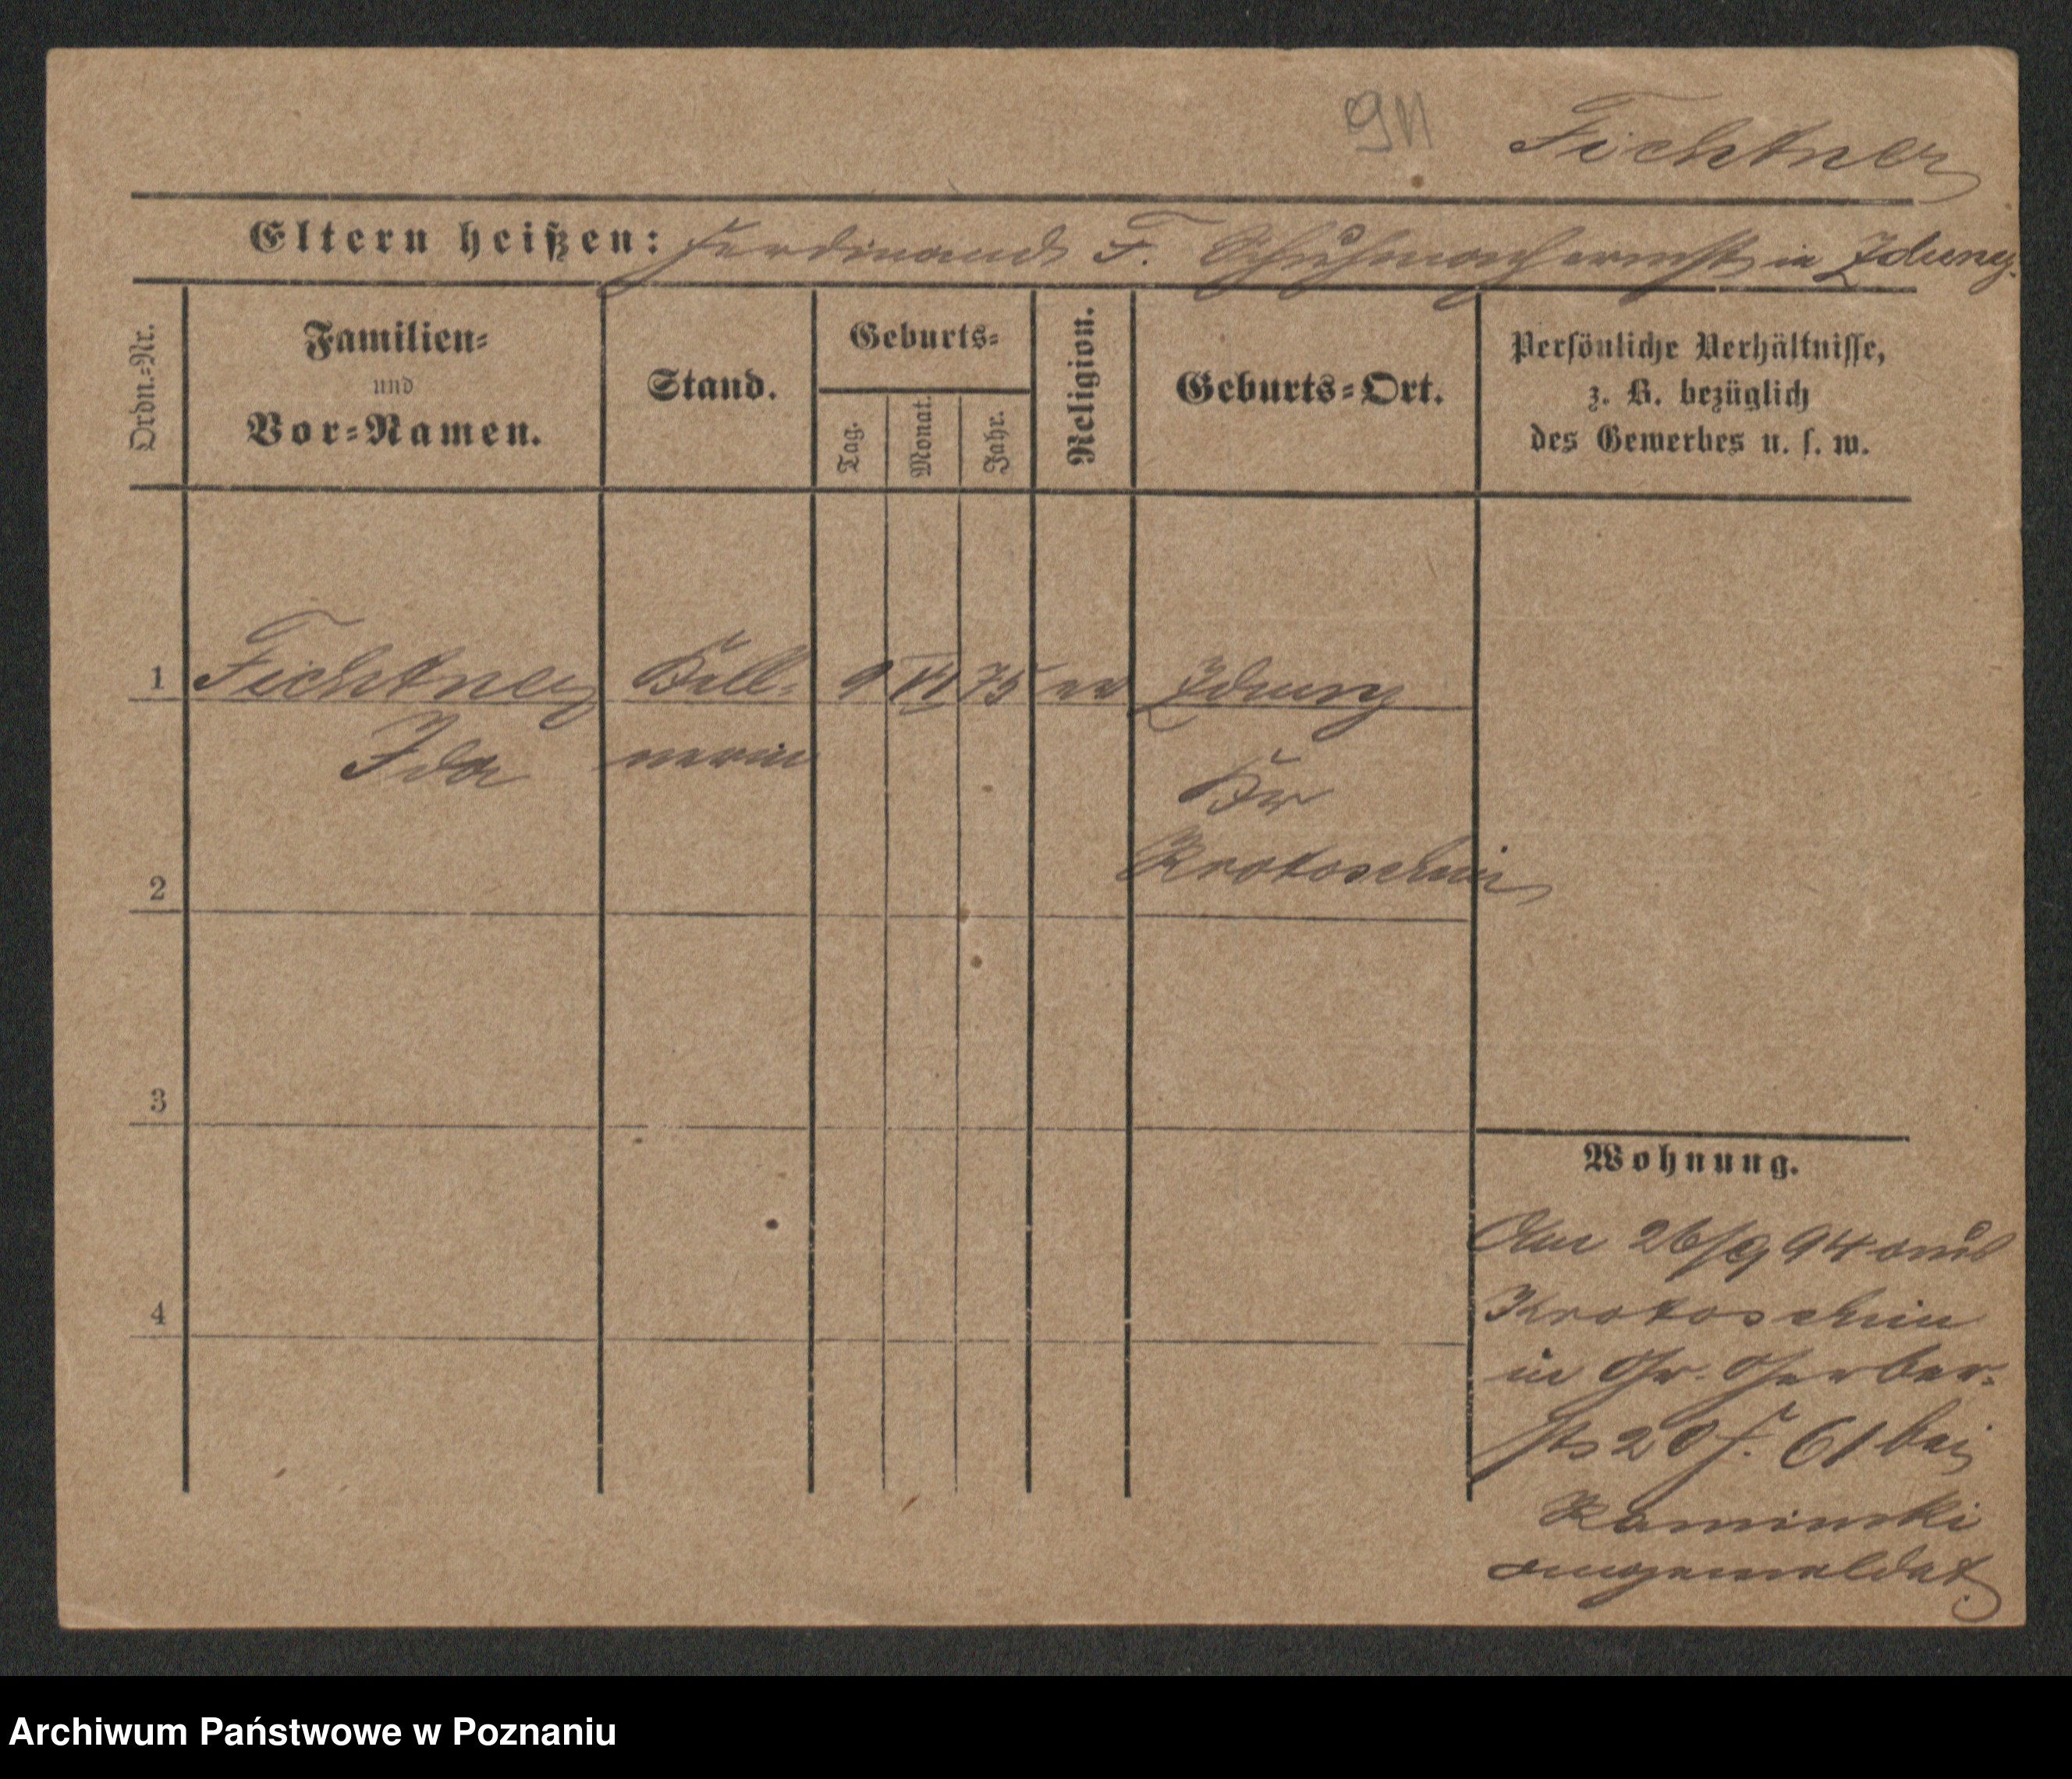 911
Fichtner
Eltern heißen: Ferdinand F. Schuhmachermstr in Zduny.
Ordn.=Nr.
Familien=
und
Vor=Namen.
Stand.
Geburts=
Tag.
Monat.
Jahr.
Religion.
Geburts=Ort.
Persönliche Verhältnisse,
z. B. bezüglich
des Gewerbes u. s. w.
1 Fichtner Kell- 9 VI 75 ev Zduny
Ida nerin
Kr
Krotoschin
2
3
4
Wohnung.
Am 26/9 94 aus
Krotoschin
in Gr. Gerber-
str 20 f. 61 bei
Kaminski
angemeldet
Archiwum Państwowe w Poznaniu